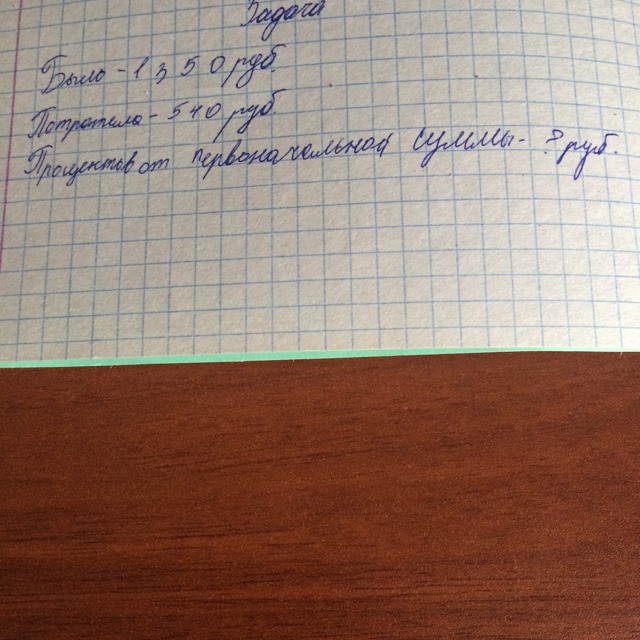 Задача
Было - 1350 руб.
Потратила - 540 руб.
Процентов от первоначальной суммы - ? руб.